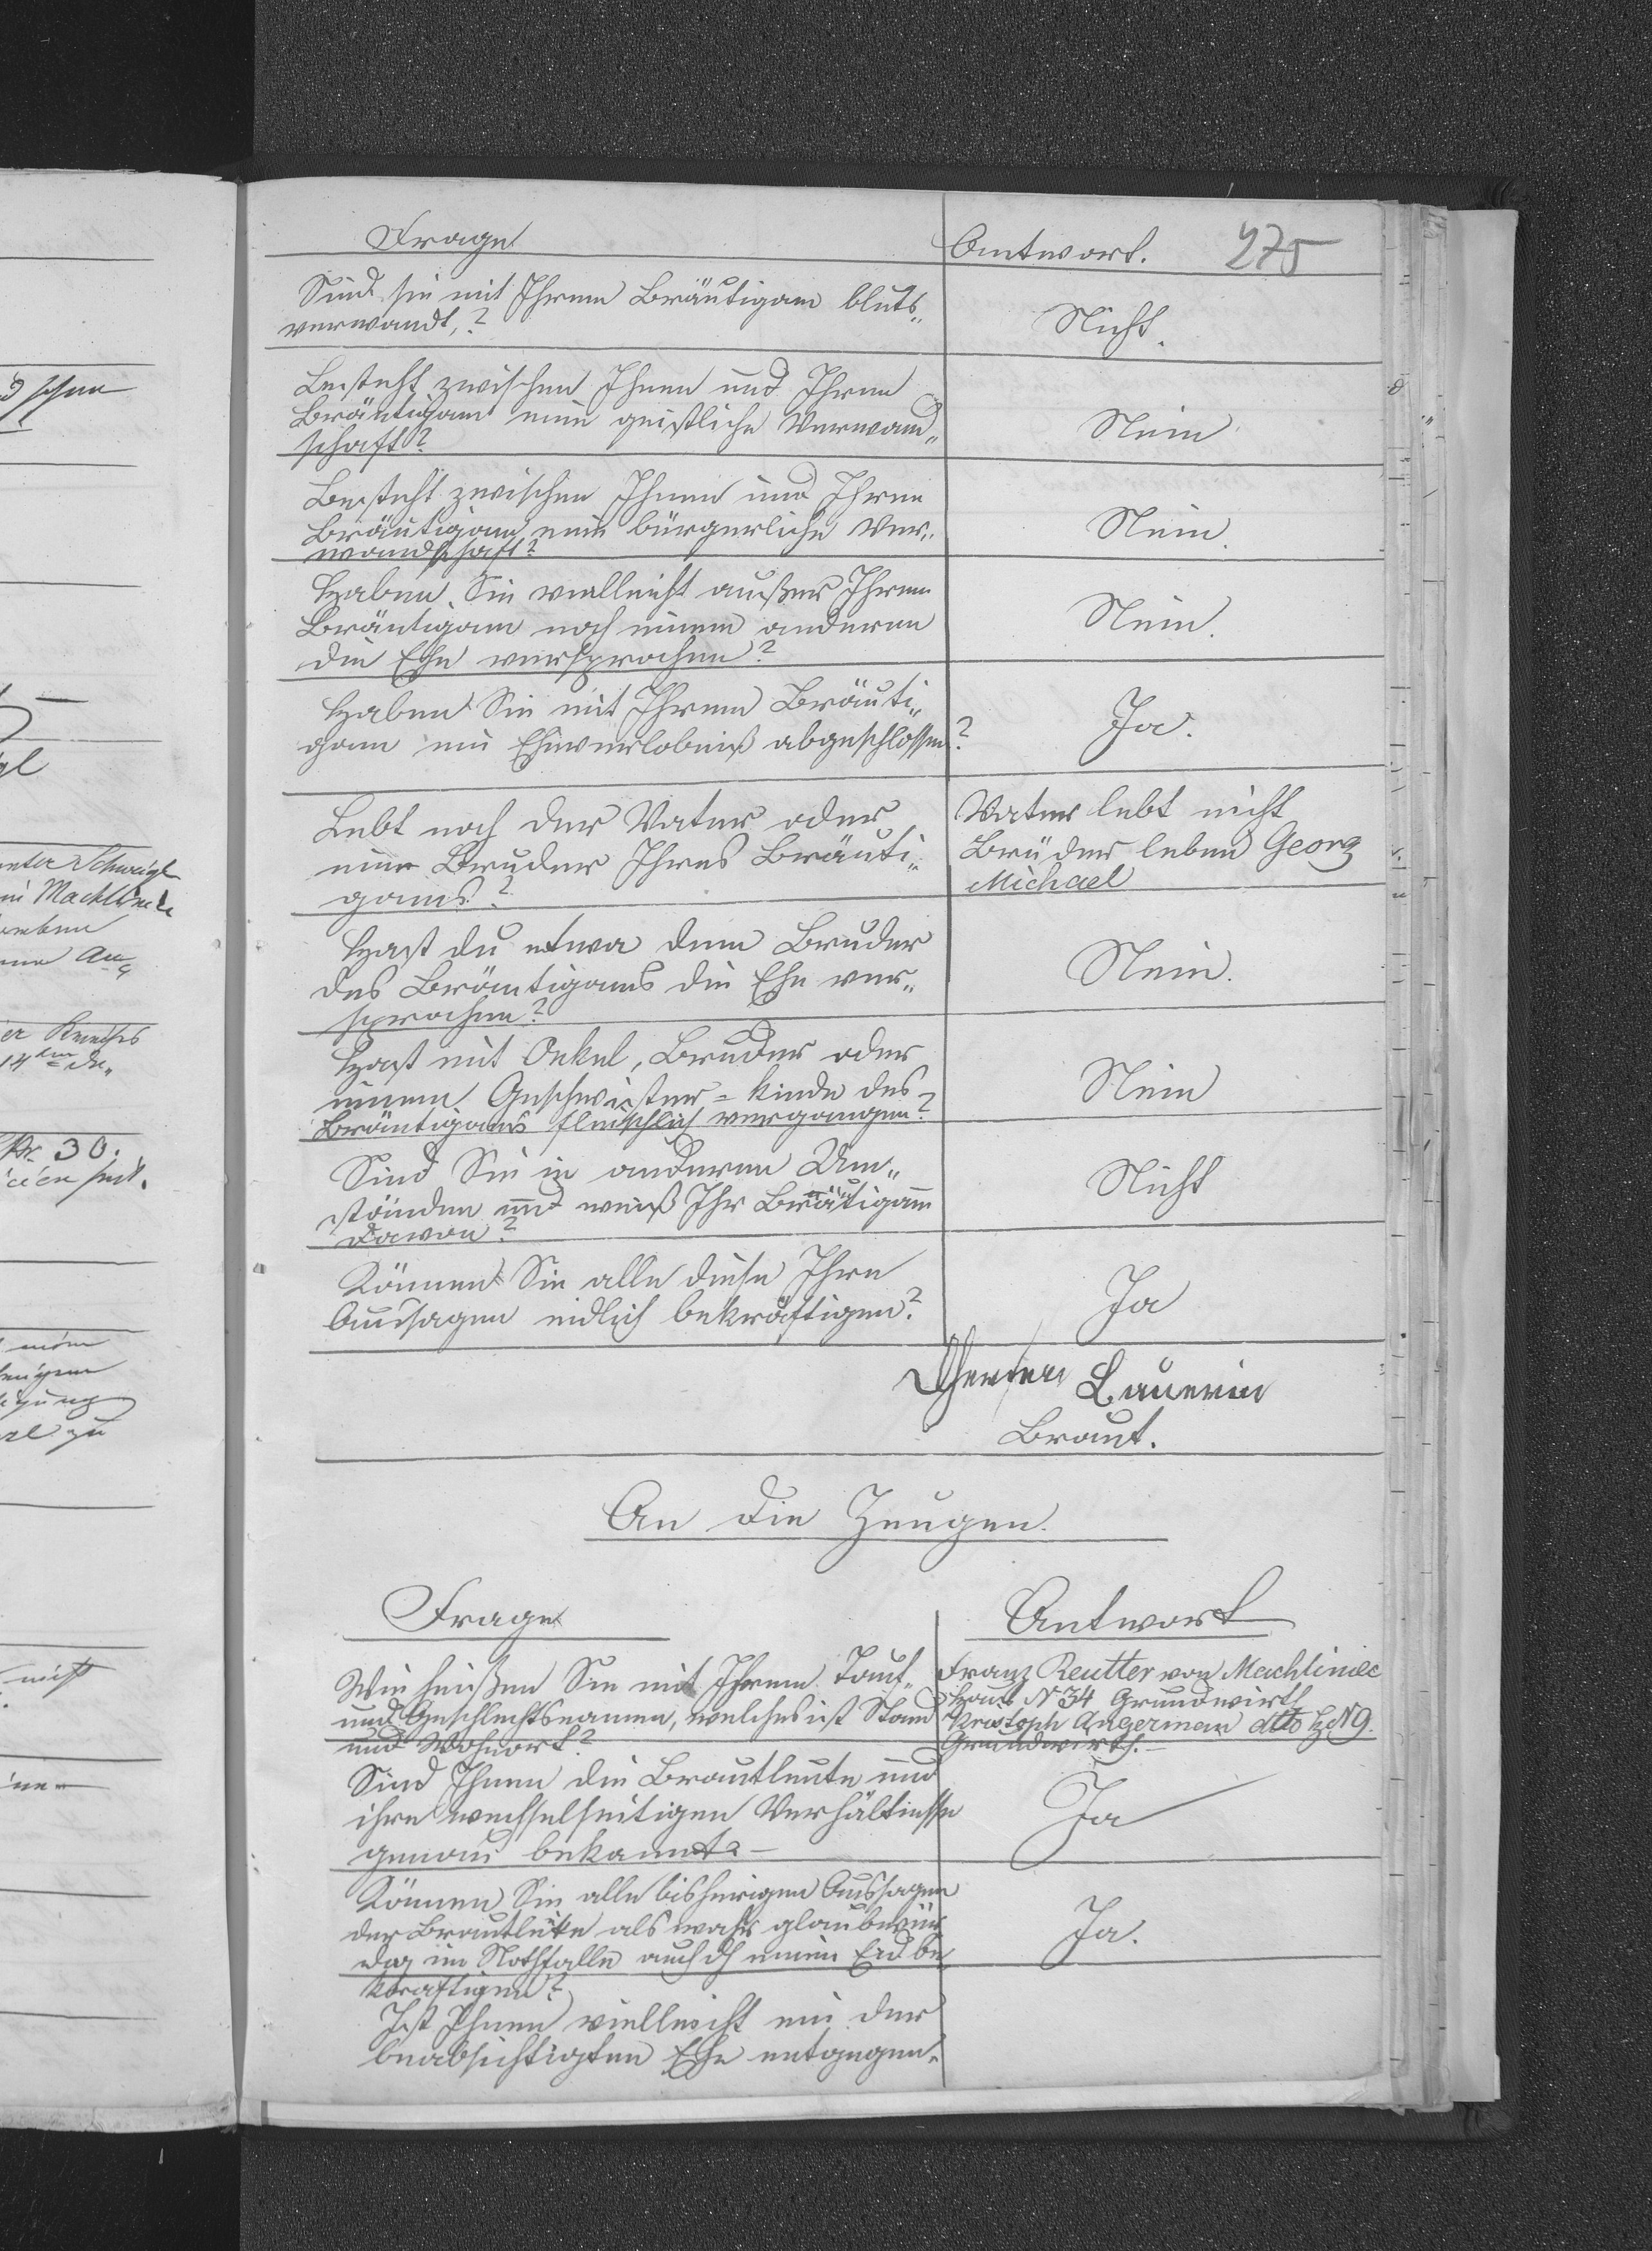 Frage
Antwort.
275
Sind sie mit Ihrem Bräutigam bluts„
verwandt,?
Nicht.
Besteht zwischen Ihnen und Ihrem
Bräutigam eine geistliche Verwand„
schaft?
Nein
Besteht zwischen Ihnen und Ihrem
Bräutigam eine bürgerliche Ver„
wandschaft?
Nein.
Haben Sie vielleicht außer Ihrem
Bräutigam noch einem anderen
die Ehe versprochen?
Nein.
Haben Sie mit Ihrem Bräuti„
gam ein Eheverlobniß abgeschlossen?
Ja.
Lebt noch der Vater oder
ein Bruder Ihres Bräuti„
gams?
Vater lebt nicht
Brüder leben Georg
Michael
Hast du etwa dem Bruder
des Bräutigams die Ehe ver„
sprochen?
Nein.
Hast mit Onkel, Bruder oder
einem Geschwister=kinde des
Bräutigams fleischlich vergangen?
Nein
Sind Sie in anderen Um„
ständen und weiß Ihr Bräutigam
davon?
Nicht
Können Sie alle diese Ihre
Aussagen eidlich bekräftigen?
Ja
Lauerin
Braut.
An die Zeugen.
Frage
Antwort
Wie heißen Sie mit Ihrem Tauf„
und Geschlechtsnamen, welches ist Stand
und Wohnort?
Franz Reutter von Machliniec
Haus N 34 Grundwirth
Kristoph Angerman dtto H N 9.
Grundwirth.–
Sind Ihnen die Brautleute und
ihre wechselseitigen Verhältnisse
genau bekannt?–
Ja
Können Sie alle bisherigen Aussagen
der Brautleute als wahr glaubwür
dig im Nothfalle auch dh einen Eid be„
kräftigen?
Ja.
Ist Ihnen vielleicht ein der
beabsichtigten Ehe entgegen„